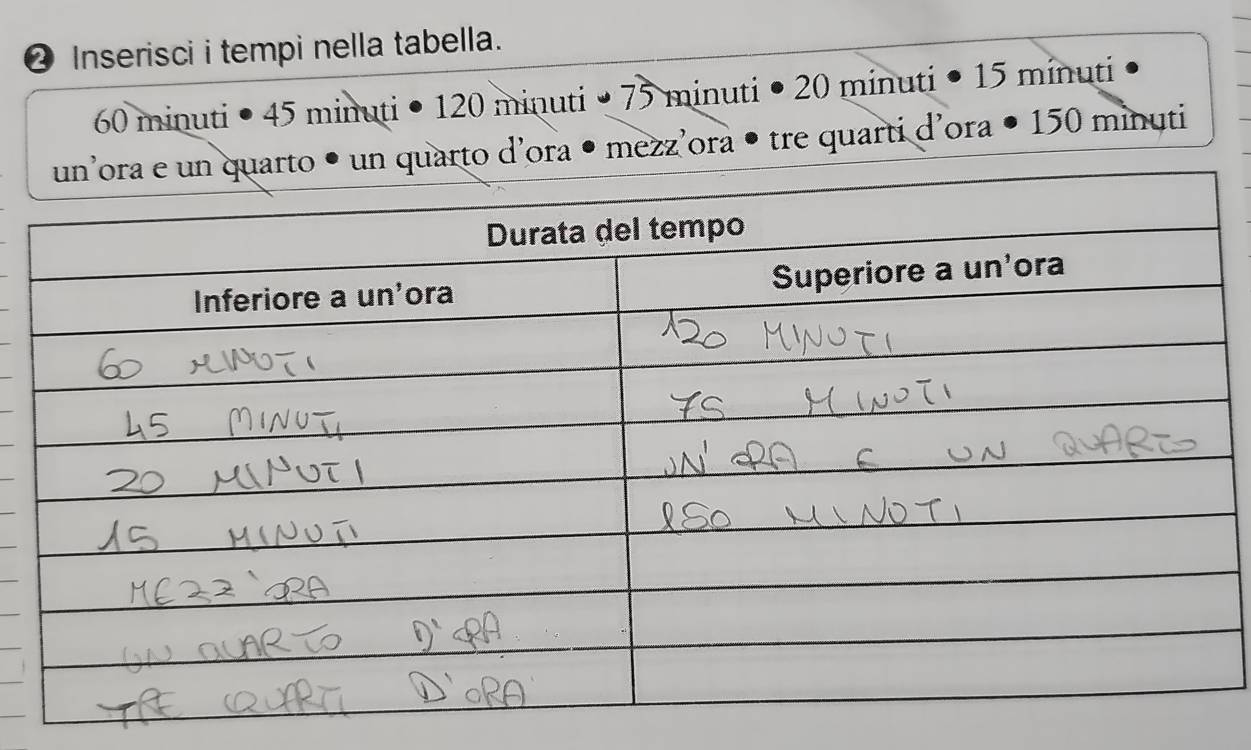 2 Inserisci i tempi nella tabella.
60 minuti • 45 minuti • 120 minuti • 75 minuti • 20 minuti • 15 minuti •
un'ora e un quarto • un quarto d'ora • mezz'ora • tre quarti d'ora • 150 minuti
Durata del tempo
Inferiore a un'ora Superiore a un'ora
60 MINUTI 120 MINUTI
45 MINUTI 75 MINUTI
20 MINUTI UN'ORA E UN QUARTO
15 MINUTI 150 MINUTI
MEZZ'ORA
UN QUARTO D'ORA
TRE QUARTI D'ORA